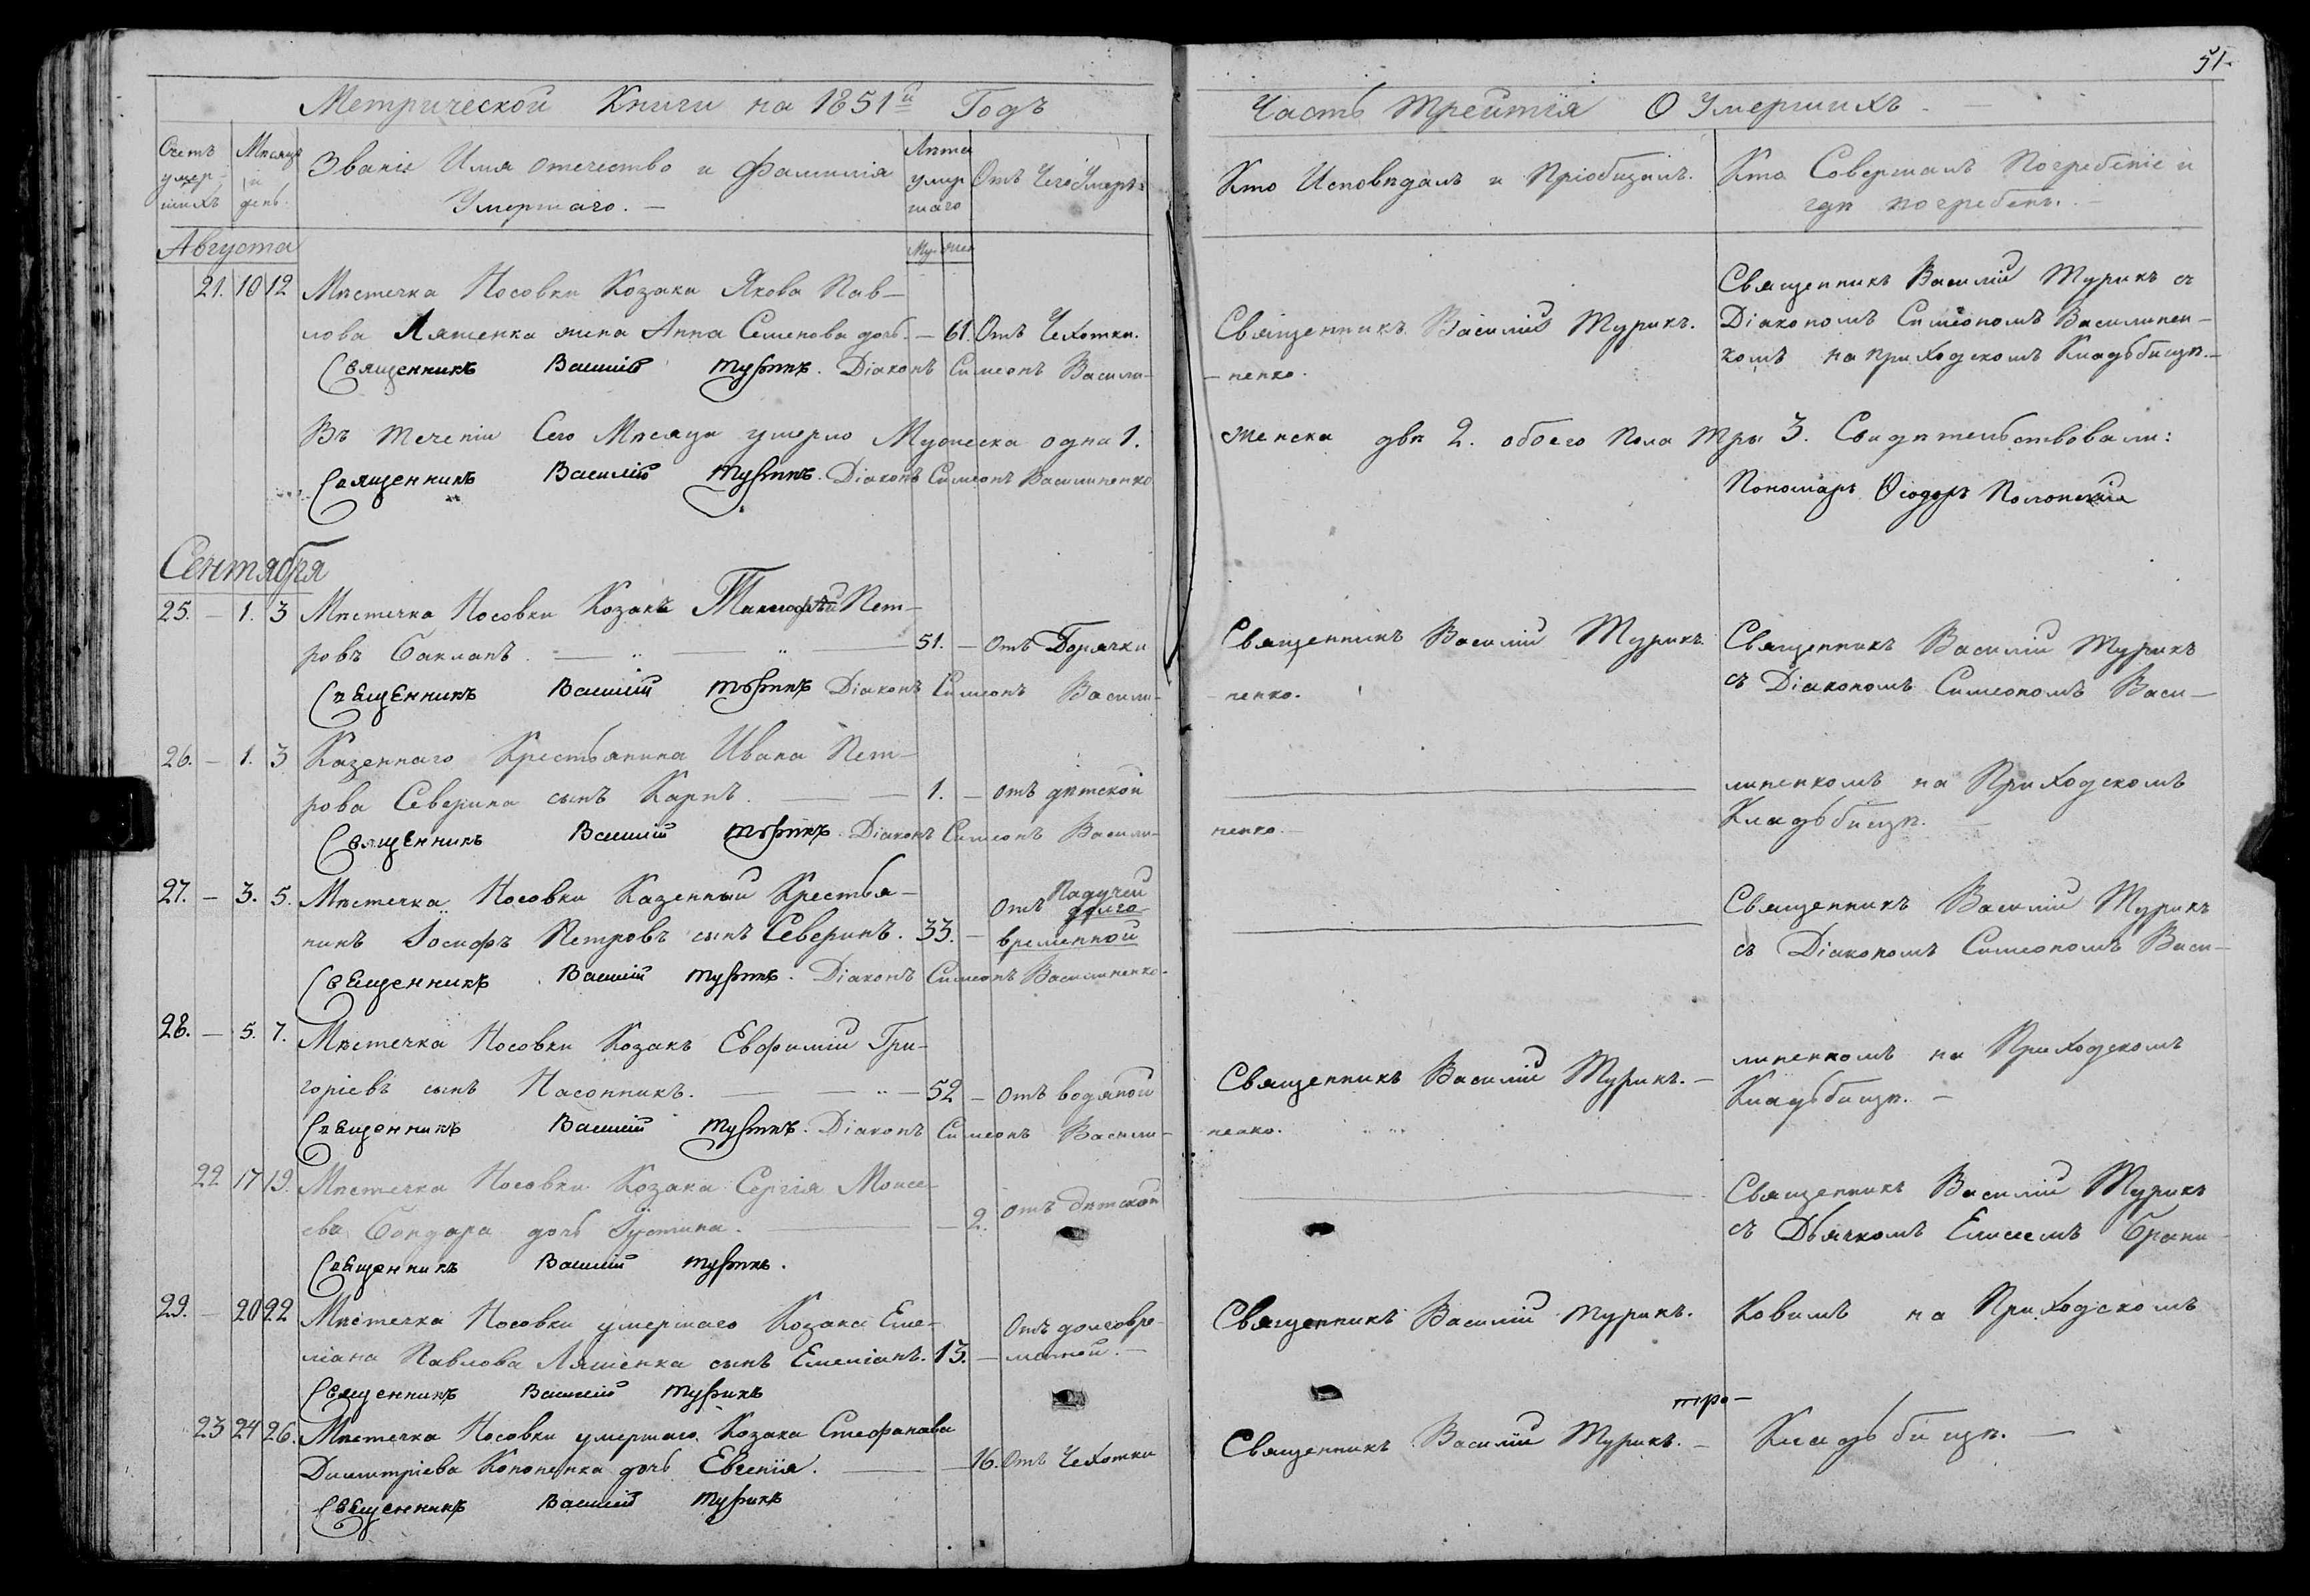 51.
Метрической Книги на 1851й Годъ
Часть Трейтїя О Умершихъ
Счетъ умер-шихъ
Мѣсяцъ и день.
Званіе Имя отечество и Фамилія Умершаго. —
Лѣта умер шаго
Му- жен
Отъ Чего Умеръ
Кто Исповѣдалъ и Пріобщалъ.
Кто Совершалъ Погребеніе и гдѣ погребенъ. —
Августа
21. 10 12 Мѣстечка Носовки Козака Якова Пав—
лова Ляшенка жена Анна Семенова дочь. — 61. Отъ Чехотки.
Священникъ Василій Турикъ. Діаконъ Симеонъ Васили-
Священникъ Василій Турикъ.
— ненко.
Священникъ Василій Турикъ съ
Діакономъ Симеономъ Василинен-
комъ на приходскомъ Кладьбищѣ. —
Въ теченіи Сего Мѣсяца умерло Мужеска одна 1.
женска двѣ 2. обоего пола Тры 3. Свидѣтельствовали:
Священникъ Василій Турикъ. Діаконъ Симеонъ Василиненко
Пономарь Ѳеодоръ Полонскій
Сентября
25. — 1. 3 Мѣстечка Носовки Козакъ Тимофѣй Пет—
ровъ Бакланъ. 51. — Отъ Горячки
Священникъ Василій Турикъ Діаконъ Симеонъ Васили-
Священникъ Василій Турикъ
- ненко.
Священникъ Василій Турикъ
съ Діакономъ Симеономъ Васи—
26. — 1. 3 Казеннаго Крестьянина Ивана Пет—
рова Северина сынъ Карпъ. 1. — отъ дѣтской
Священникъ Василій Турикъ Діаконъ Симеонъ Васили-
ненко. —
линенкомъ на Приходскомъ
Кладьбищѣ. —
27. — 3. 5. Мѣстечка Носовки Казенный Крестья—
нинъ Іосифъ Петровъ сынъ Северинъ. 33. — Отъ Падучей долго-
временной
Священникъ Василій Турикъ. Діаконъ Симеонъ Василиненко.
Священникъ Василій Турикъ
съ Діакономъ Симеономъ Васи—
28. — 5. 7. Мѣстечка Носовки Козакъ Евфимій Гри-
горіевъ сынъ Насонникъ. 52 — отъ водяной
Священникъ Василій Турикъ. Діаконъ Симеонъ Васили-
Священникъ Василій Турикъ. —
ненко.
линенкомъ на Приходскомъ
Кладьбищѣ. —
22 17 19. Мѣстечка Носовки Козака Сергія Моисе-
ева Бондара дочь Іустина. — 2. отъ дѣтской
Священникъ Василій Турикъ.
Священникъ Василій Турикъ
съ Дьячкомъ Елисеемъ Брани-
29. — 20 22 Мѣстечка Носовки умершаго Козака Еме-
ліана Павлова Ляшенка сынъ Емеліанъ. 13. — Отъ долговре-
менной. —
Священникъ Василій Турикъ
Священникъ Василій Турикъ.
ковимъ на Приходскомъ
23 24 26. Мѣстечка Носовки умершаго Козака Стефанава
Димитріева Кононенка дочь Евгенія. — 16. Отъ Чехотки
Священникъ Василій Турикъ
Священникъ Василій Турикъ. —
Кладьбищѣ. —